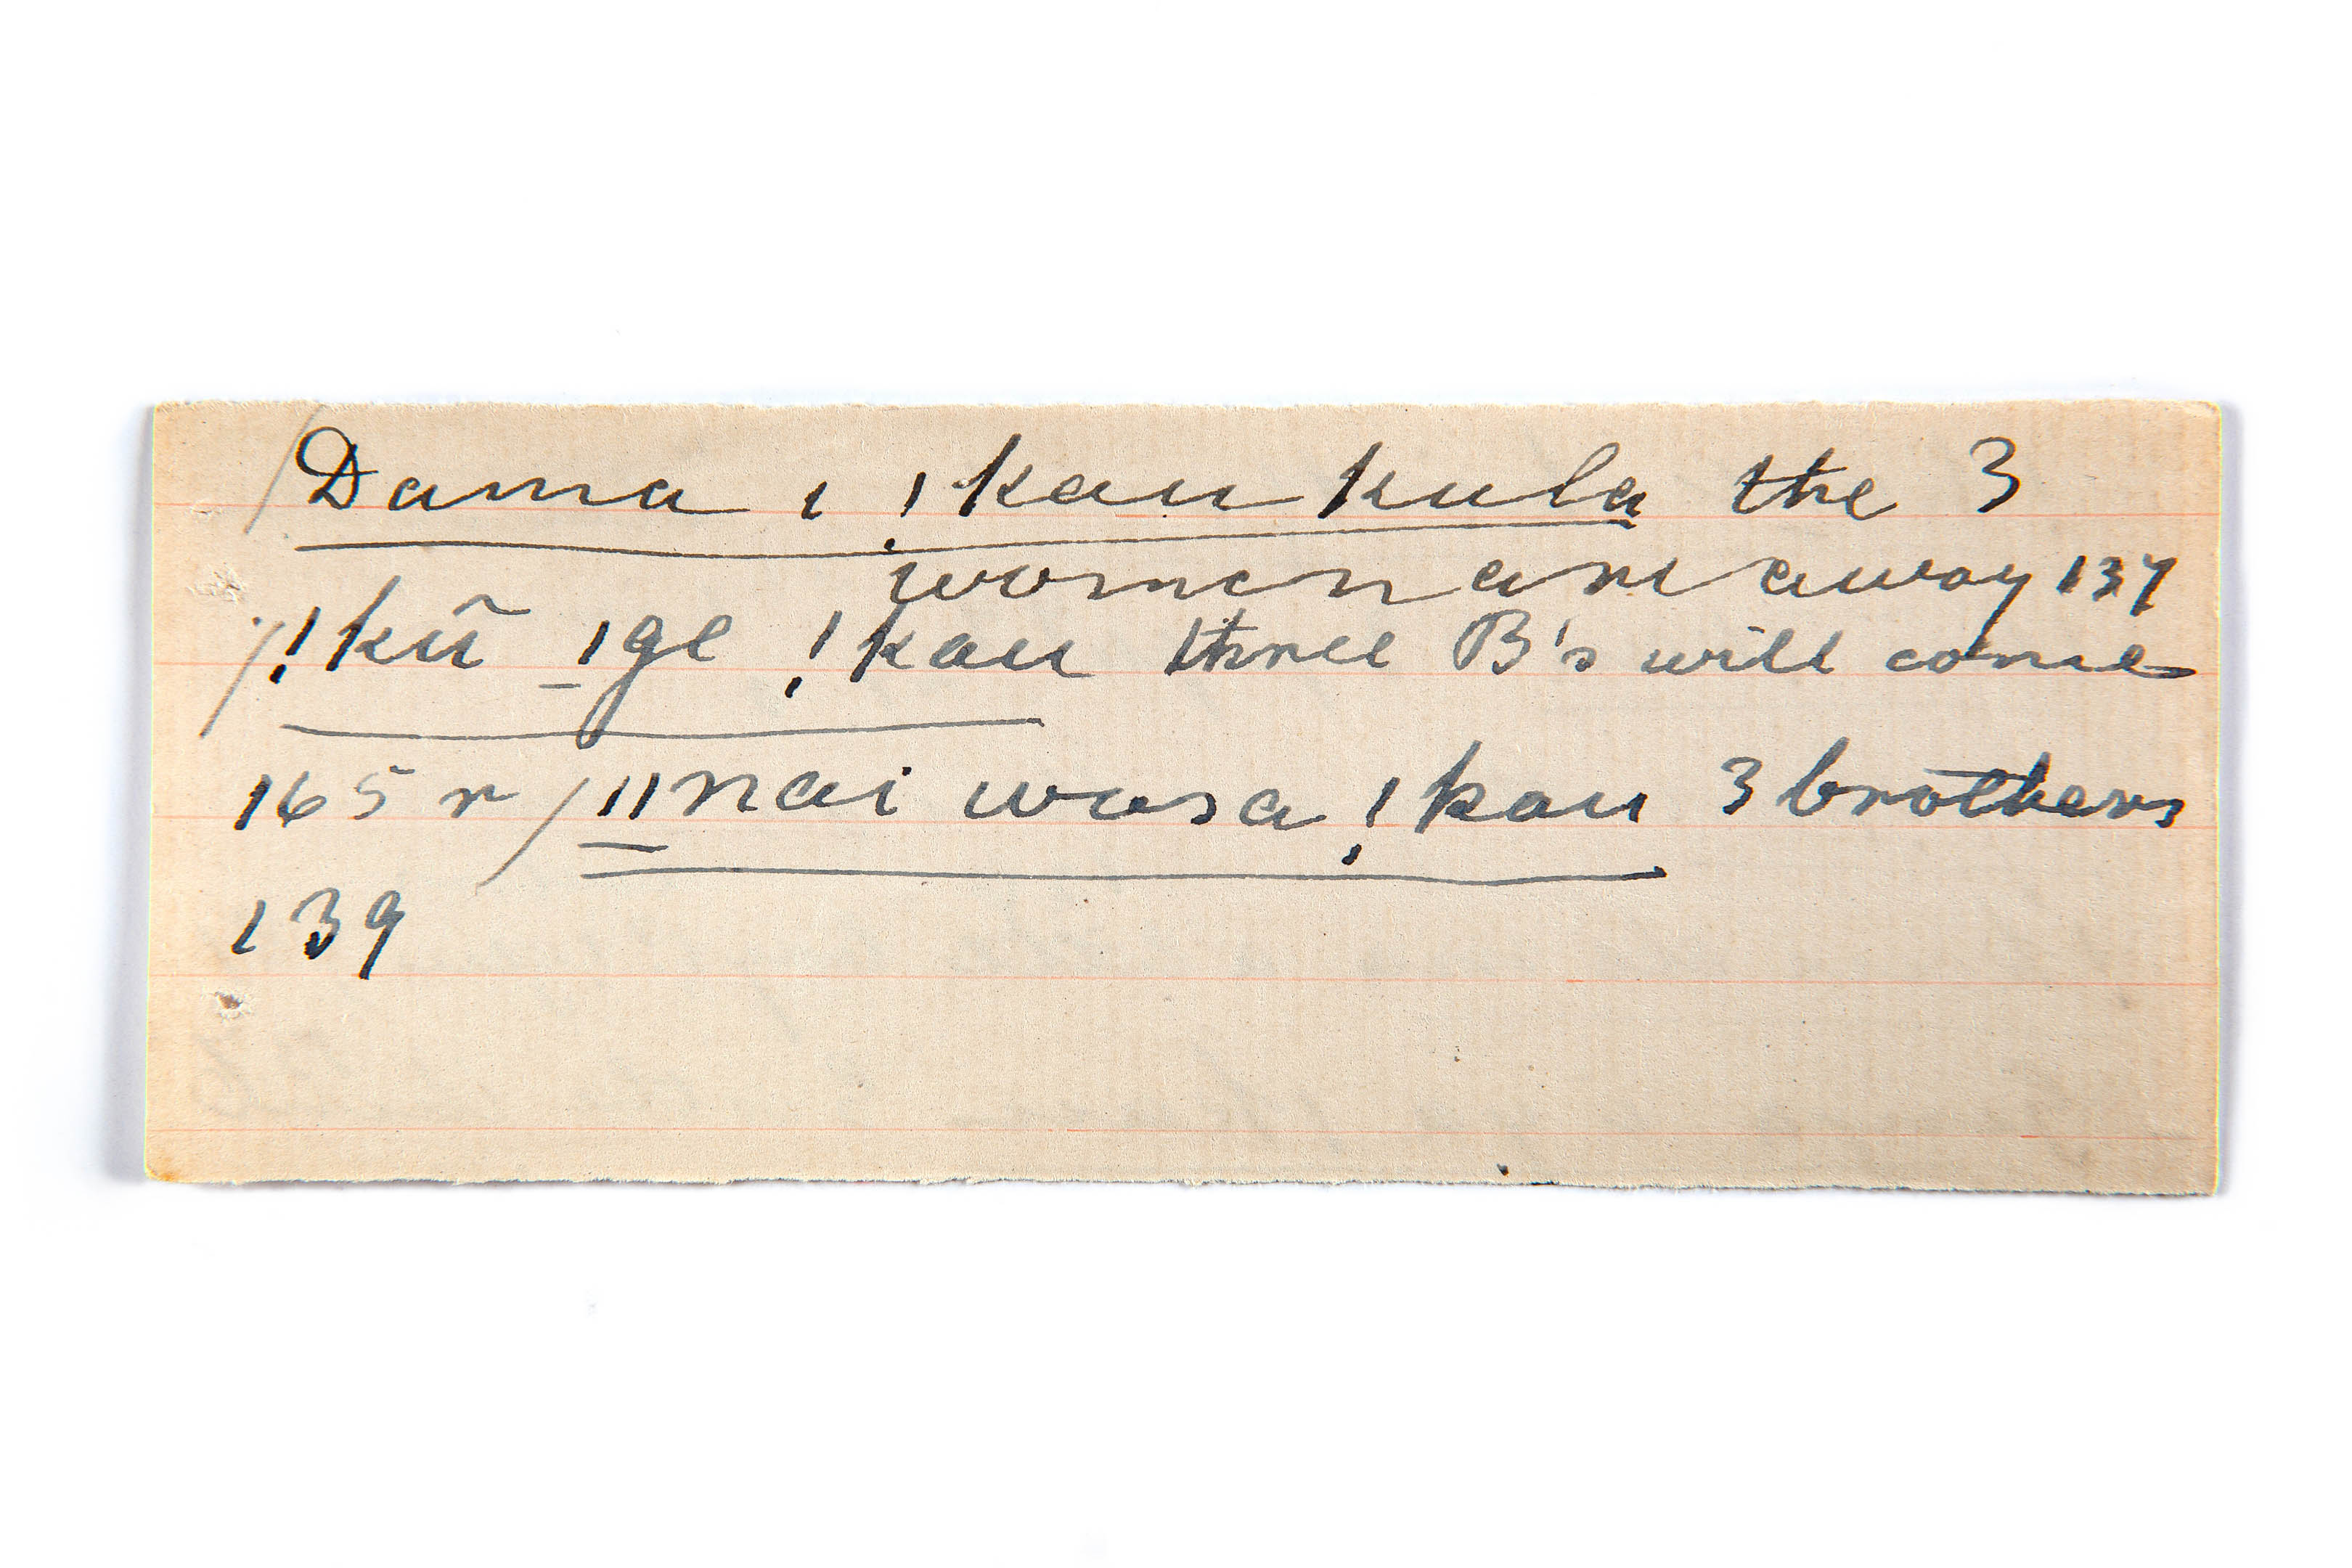 /Dama ı !kau kula the 3
women are away 137
/!kũ ıge !kau three B's will come
165 r /ǁnai wasa !kau 3 brothers
139